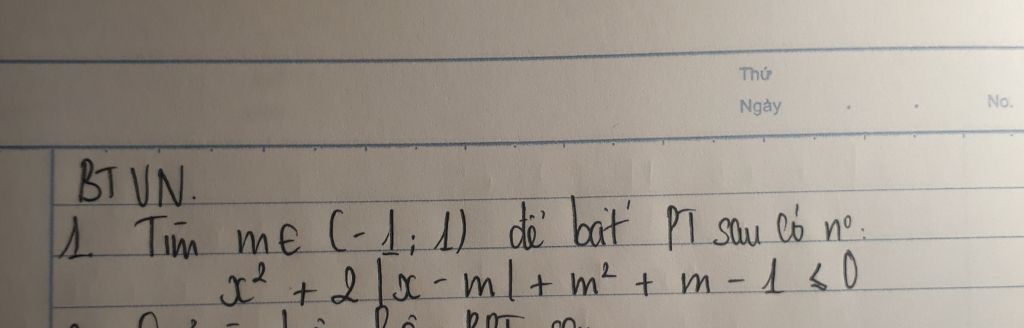 Thứ
Ngày . . No.
BTVN.
1. Tìm m∈ (-1; 1) để bất PT sau có n°:
x² + 2|x - m| + m² + m - 1 ≤ 0